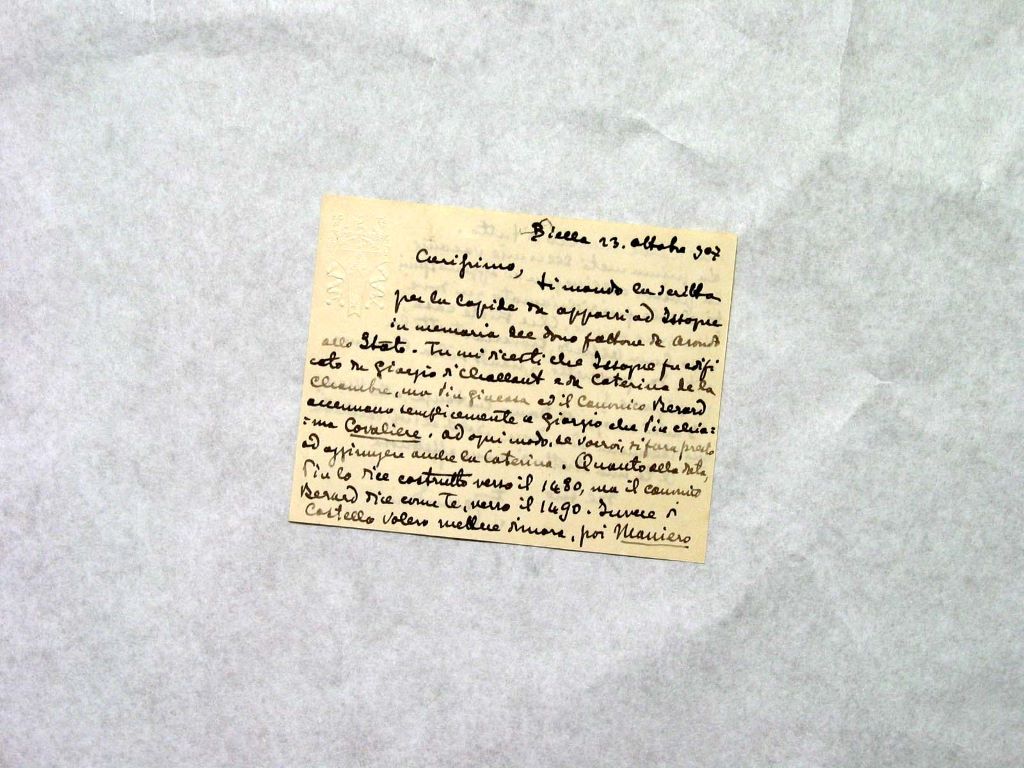 Biella 23. ottobre 907
Carissimo,
ti mando la scritta
per la lapide da apporsi ad Issogne
in memoria del dono fattone da Avondo
allo Stato. Tu mi dicesti che Issogne fu edifi
cato da Giorgio di Challant e da Caterina de la
Chambre, ma Din Giacosa ed il Canonico Berard
accennano semplicemente a Giorgio che Pin chia=
=ma Cavaliere. ad ogni modo, se vorrai, si fara presto
ad aggiungere anche la Caterina. Quanto alla data,
Pin lo dice costrutto verso il 1480, ma il canonico
Berard dice come te, verso il 1490. Invece di
Castello volevo mettere dimora, poi Maniero